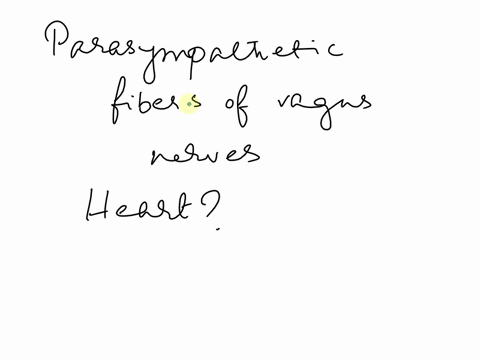 Parasympathetic
fibers of vagus
nerves
Heart?